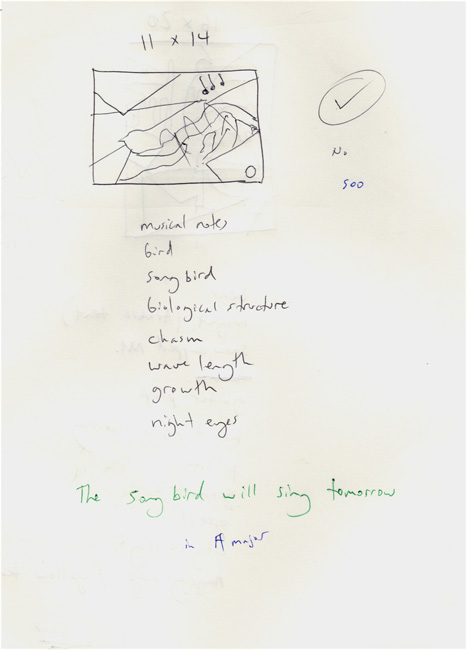 11 x 14
No
500
musical notes
bird
song bird
biological structure
chasm
wave length
growth
night eyes
The song bird will sing tomorrow
in A major